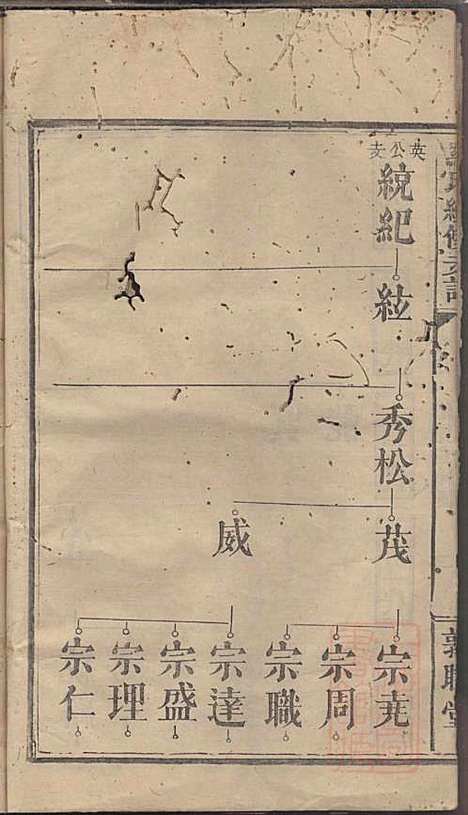 英公支
統紀
絃
秀松
茂
威
宗尭
宗周
宗職
宗達
宗盛
宗理
宗仁